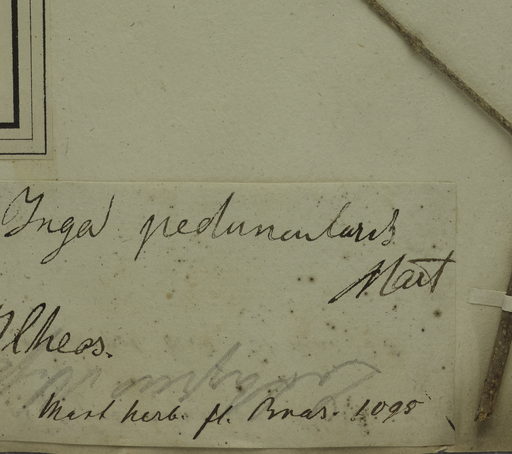 Inga peduncularis
Mart
Ilheos.
Mart herb. fl. Bras. 1095